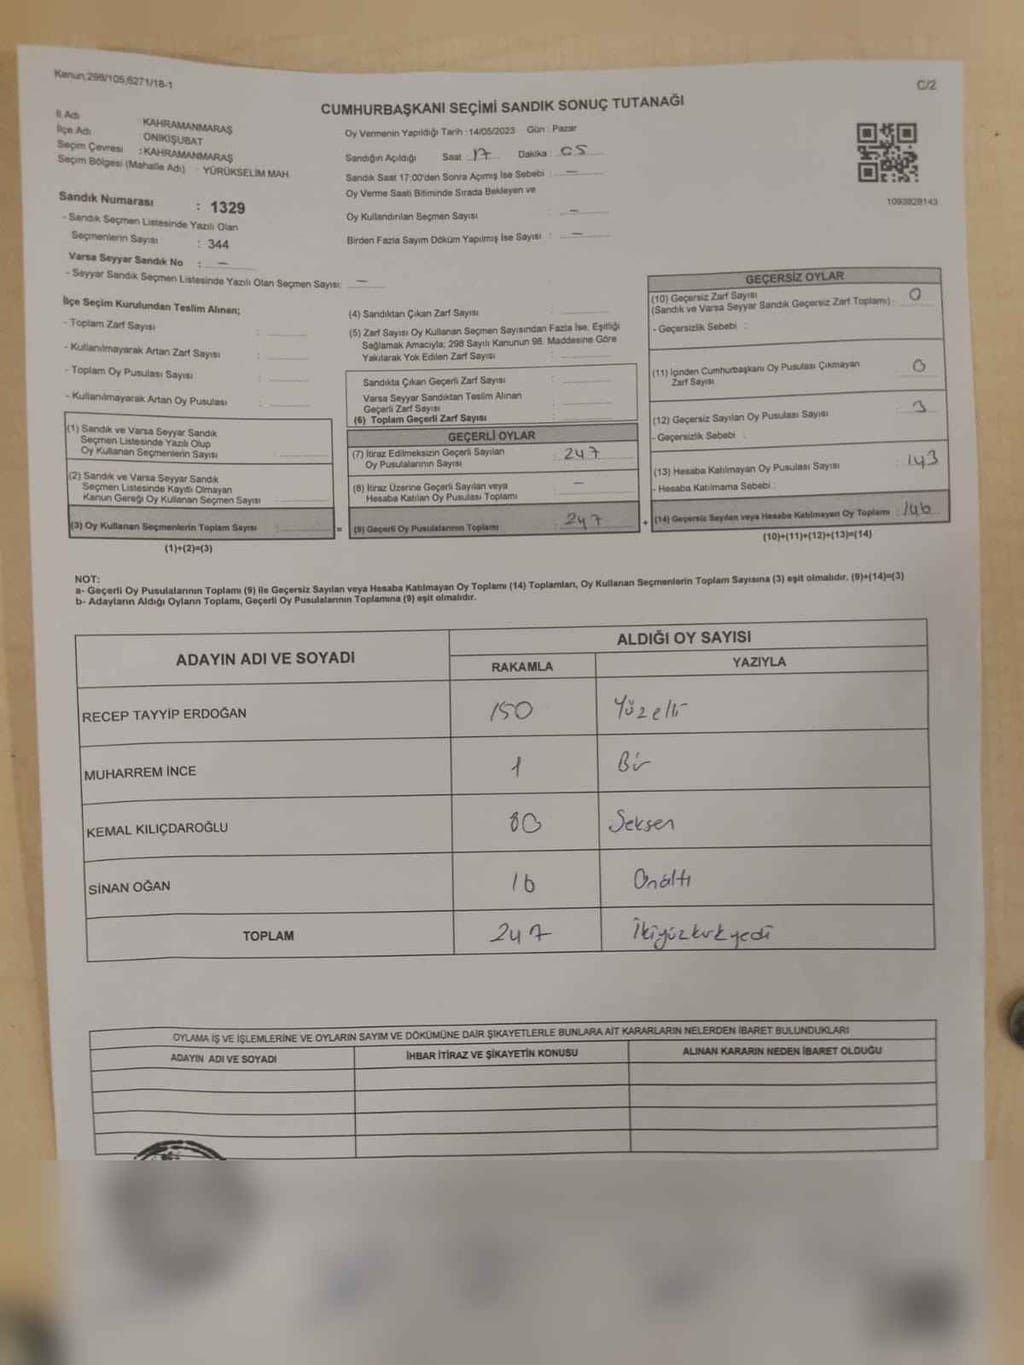 Kanun;298/105,6271/18-1
C/2
CUMHURBAŞKANI SEÇİMİ SANDIK SONUÇ TUTANAĞI
İl Adı : KAHRAMANMARAŞ
İlçe Adı : ONİKİŞUBAT
Seçim Çevresi : KAHRAMANMARAŞ
Seçim Bölgesi (Mahalle Adı) : YÜRÜKSELİM MAH.
Sandık Numarası : 1329
- Sandık Seçmen Listesinde Yazılı Olan
Seçmenlerin Sayısı : 344
Varsa Seyyar Sandık No : —
- Seyyar Sandık Seçmen Listesinde Yazılı Olan Seçmen Sayısı: —
Oy Vermenin Yapıldığı Tarih : 14/05/2023 Gün : Pazar
Sandığın Açıldığı Saat : 17 Dakika : 05
Sandık Saat 17:00'den Sonra Açımış İse Sebebi : —
Oy Verme Saati Bitiminde Sırada Bekleyen ve
Oy Kullandırılan Seçmen Sayısı : —
Birden Fazla Sayım Döküm Yapılmış İse Sayısı : —
1093828143
İlçe Seçim Kurulundan Teslim Alınan;
- Toplam Zarf Sayısı :
- Kullanılmayarak Artan Zarf Sayısı :
- Toplam Oy Pusulası Sayısı :
- Kullanılmayarak Artan Oy Pusulası :
(1) Sandık ve Varsa Seyyar Sandık
Seçmen Listesinde Yazılı Olup
Oy Kullanan Seçmenlerin Sayısı :
(2) Sandık ve Varsa Seyyar Sandık
Seçmen Listesinde Kayıtlı Olmayan
Kanun Gereği Oy Kullanan Seçmen Sayısı :
(3) Oy Kullanan Seçmenlerin Toplam Sayısı :
(1)+(2)=(3)
(4) Sandıktan Çıkan Zarf Sayısı :
(5) Zarf Sayısı Oy Kullanan Seçmen Sayısından Fazla İse, Eşitliği
Sağlamak Amacıyla; 298 Sayılı Kanunun 98. Maddesine Göre
Yakılarak Yok Edilen Zarf Sayısı :
Sandıkta Çıkan Geçerli Zarf Sayısı :
Varsa Seyyar Sandıktan Teslim Alınan
Geçerli Zarf Sayısı :
(6) Toplam Geçerli Zarf Sayısı :
GEÇERLİ OYLAR
(7) İtiraz Edilmeksizin Geçerli Sayılan
Oy Pusulalarının Sayısı : 247
(8) İtiraz Üzerine Geçerli Sayılan veya
Hesaba Katılan Oy Pusulası Toplamı : —
= (9) Geçerli Oy Pusulalarının Toplamı : 247
GEÇERSİZ OYLAR
(10) Geçersiz Zarf Sayısı
(Sandık ve Varsa Seyyar Sandık Geçersiz Zarf Toplamı) : 0
- Geçersizlik Sebebi :
(11) İçinden Cumhurbaşkanı Oy Pusulası Çıkmayan
Zarf Sayısı : 0
(12) Geçersiz Sayılan Oy Pusulası Sayısı : 3
- Geçersizlik Sebebi :
(13) Hesaba Katılmayan Oy Pusulası Sayısı : 143
- Hesaba Katılmama Sebebi :
+ (14) Geçersiz Sayılan veya Hesaba Katılmayan Oy Toplamı : 146
(10)+(11)+(12)+(13)=(14)
NOT:
a- Geçerli Oy Pusulalarının Toplamı (9) ile Geçersiz Sayılan veya Hesaba Katılmayan Oy Toplamı (14) Toplamları, Oy Kullanan Seçmenlerin Toplam Sayısına (3) eşit olmalıdır. (9)+(14)=(3)
b- Adayların Aldığı Oyların Toplamı, Geçerli Oy Pusulalarının Toplamına (9) eşit olmalıdır.
ADAYIN ADI VE SOYADI
ALDIĞI OY SAYISI
RAKAMLA YAZIYLA
RECEP TAYYİP ERDOĞAN 150 Yüzelli
MUHARREM İNCE 1 Bir
KEMAL KILIÇDAROĞLU 80 Seksen
SİNAN OĞAN 16 Onaltı
TOPLAM 247 İkiyüzkırkyedi
OYLAMA İŞ VE İŞLEMLERİNE VE OYLARIN SAYIM VE DÖKÜMÜNE DAİR ŞİKAYETLERLE BUNLARA AİT KARARLARIN NELERDEN İBARET BULUNDUKLARI
ADAYIN ADI VE SOYADI İHBAR İTİRAZ VE ŞİKAYETİN KONUSU ALINAN KARARIN NEDEN İBARET OLDUĞU